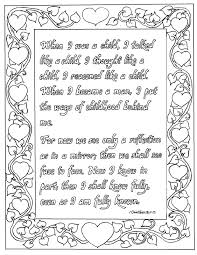 When I was a child, I talked
like a child, I thought like a
child, I reasoned like a child.
When I became a man, I put
the ways of childhood behind
me.
For now we see only a reflection
as in a mirror; then we shall
see face to face. Now I know in
part; then I shall know fully,
even as I am fully known.